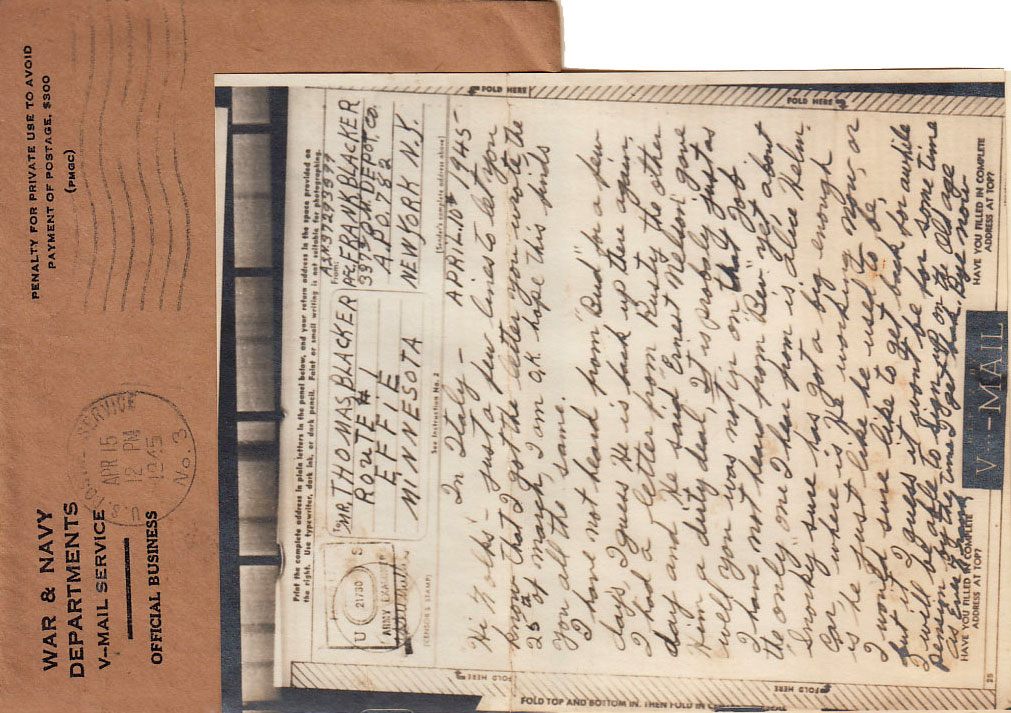 WAR & NAVY
DEPARTMENTS
V-MAIL SERVICE
OFFICIAL BUSINESS
PENALTY FOR PRIVATE USE TO AVOID
PAYMENT OF POSTAGE, $300
(PMGC)
SERVICE
APR 15
12 PM
1945
No. 3
FOLD HERE
FOLD HERE
Print the complete address in plain letters in the panel below, and your return address in the space provided on
the right. Use typewriter, dark ink, or dark pencil. Faint or small writing is not suitable for photographing.
U S
21730
ARMY EXAMINER
(CENSOR'S STAMP)
To
MR. THOMAS, BLACKER
ROUTE # 1
EFFIE
MINNESOTA
See Instruction No. 2
From
ASN 37293599
PFC. FRANK BLACKER
3973 Q.M. DEPOT, CO.
A.P.O. 782
NEW YORK N.Y.
(Sender's complete address above)
In Italy — APRIL. 10th 1945-
Hi Folks - just a few lines to let you
know that I got the letter you wrote the
25th of march, I am O.K hope this finds
you all the same.
I have not heard from "Bud" for a few
days I guess He is back up there again,
I had a letter from Rusty the other
day and he said Ernest Nelson gave
him a dirty deal, It is probably just as
well you was not in on that Job
I have not heard from "Bev" yet, about
the only one I hear from is Alice Helm.
Smoky sure has got a big enough
car, where is he working now, or
is he just like he used to be,
I would sure like to get back for awhile
but I guess it won't be for some time
I will be able to sign up on the Old age
pension by the time I get back. Bye now-
HAVE YOU FILLED IN COMPLETE
ADDRESS AT TOP?
V···-MAIL
HAVE YOU FILLED IN COMPLETE
ADDRESS AT TOP?
25
FOLD HERE
FOLD HERE
FOLD TOP AND BOTTOM IN, THEN FOLD IN